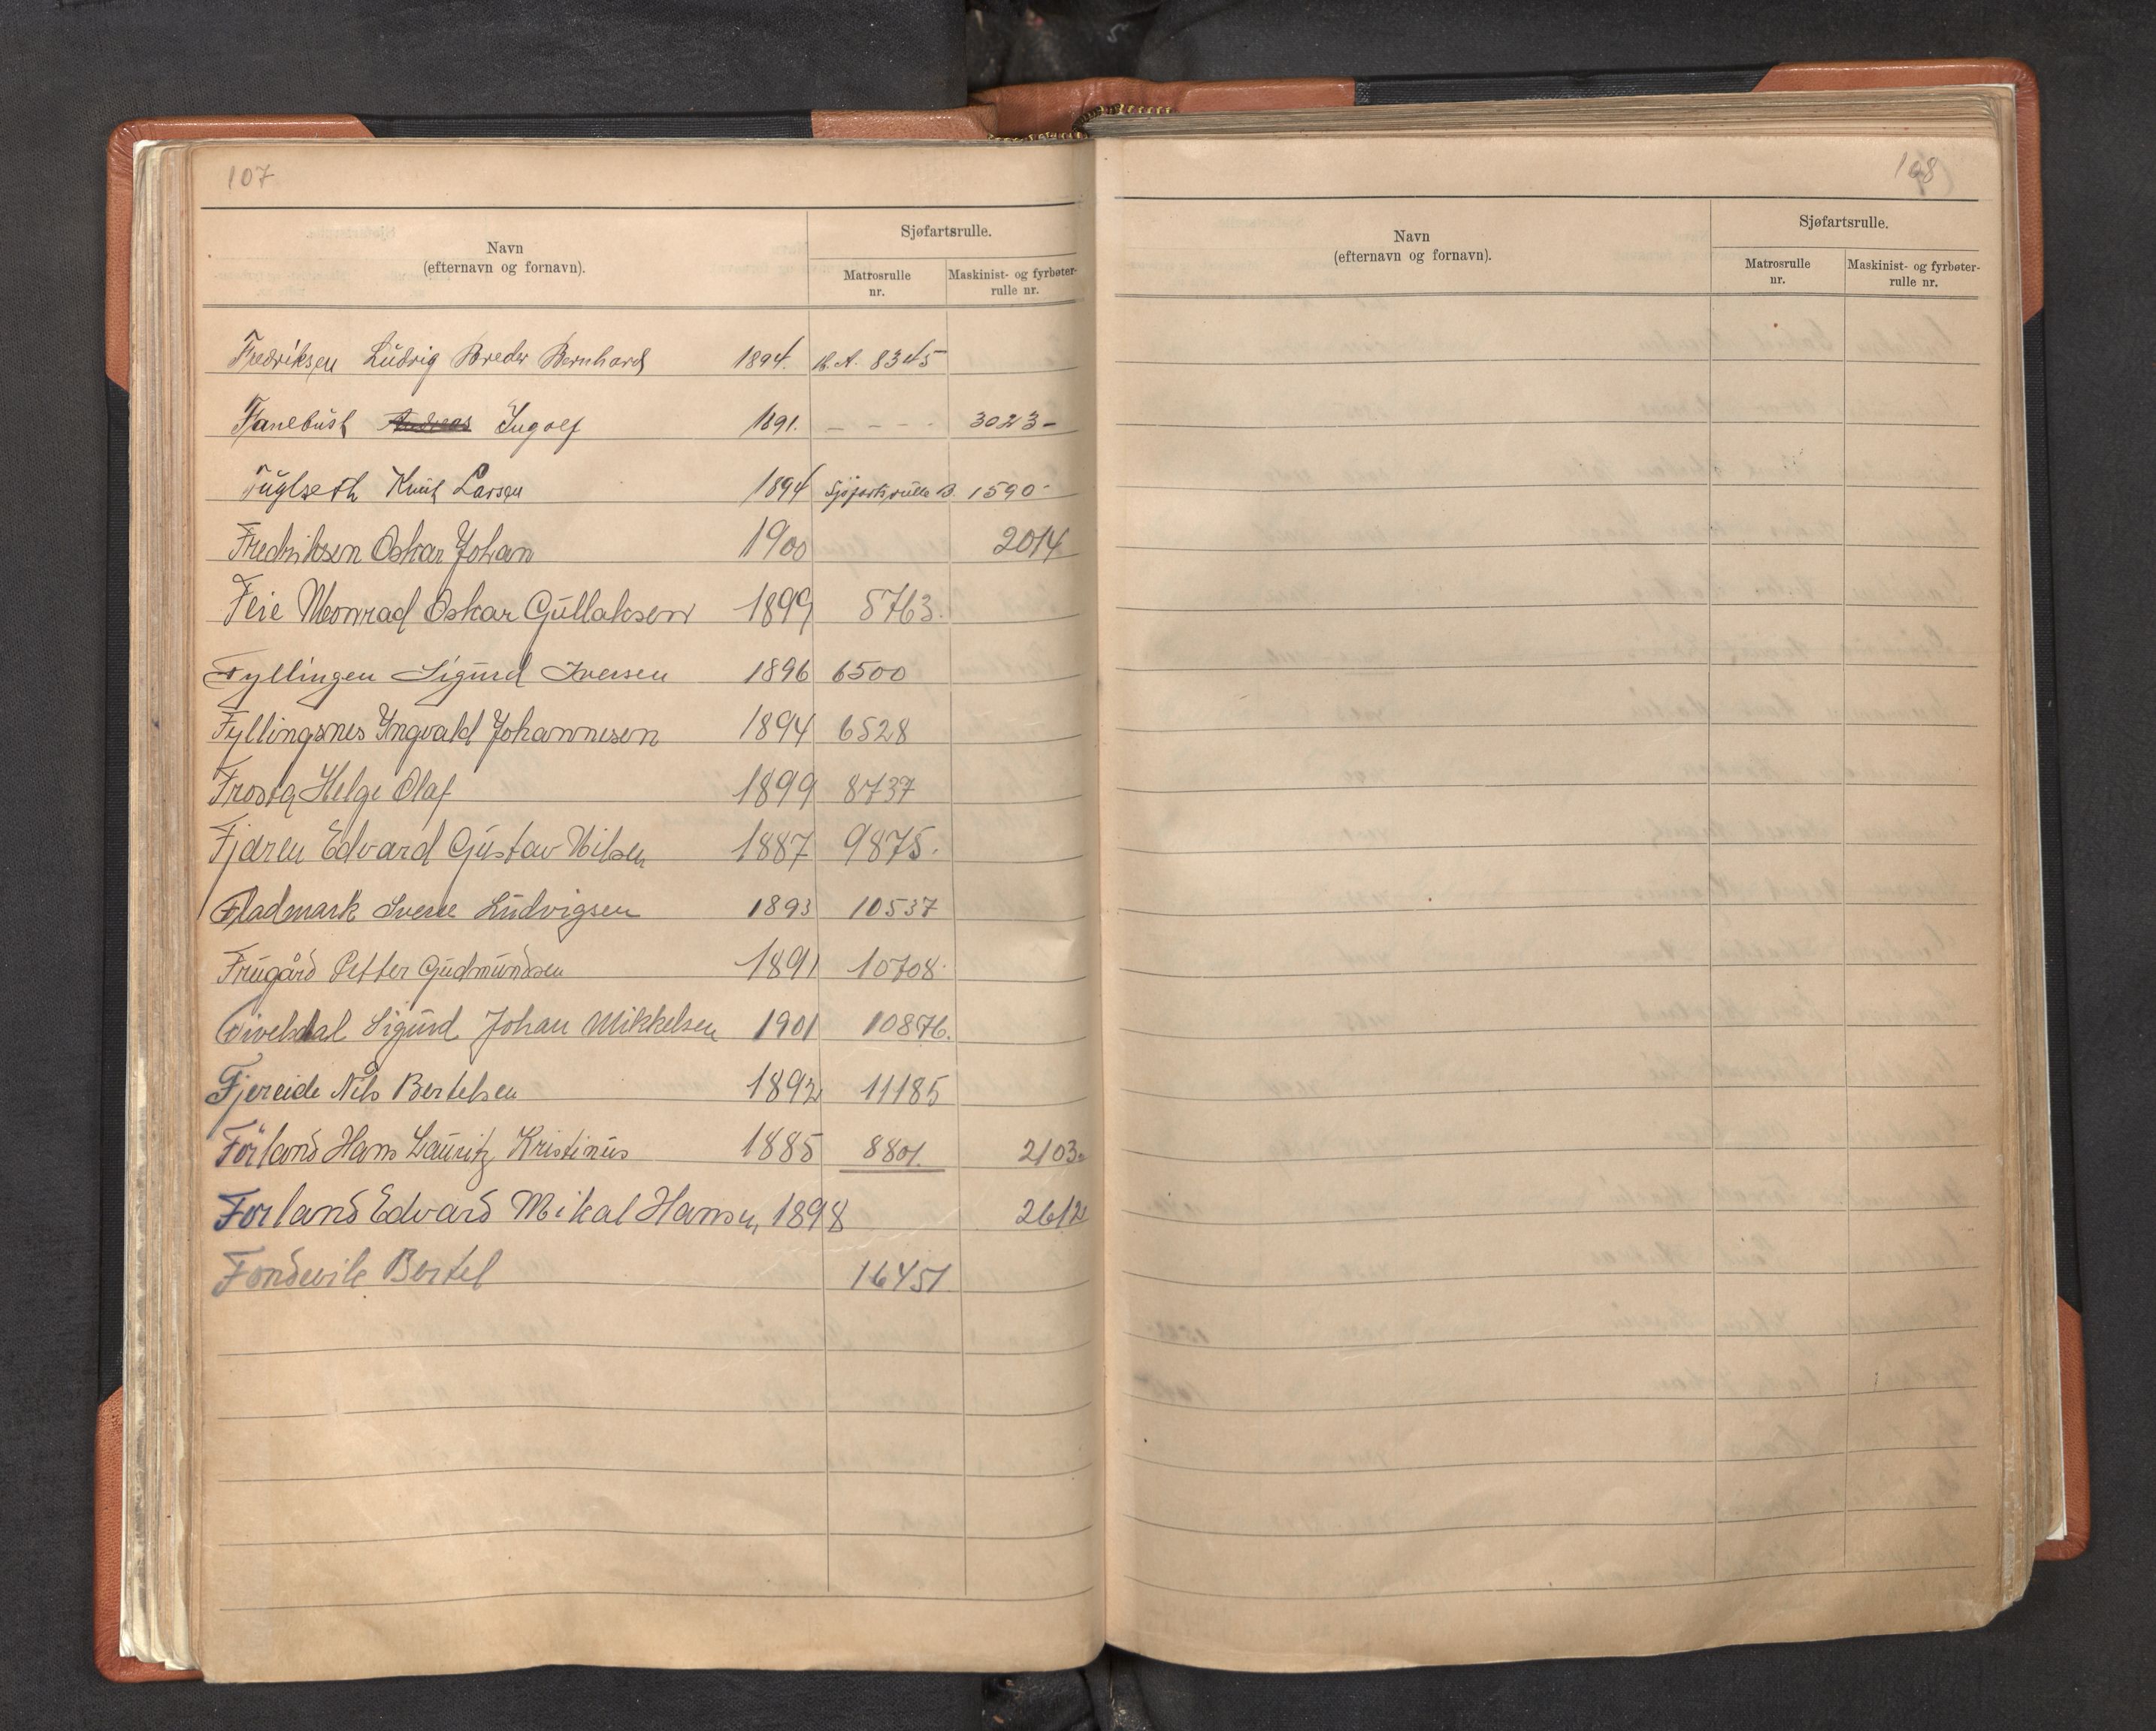 107
Navn
(efternavn og fornavn).
Sjøfartsrulle.
Matrosrulle
nr.
Maskinist- og fyrbøter-
rulle nr.
Fredriksen Ludvig Breder Bernhard 1894. 8345
Fanebust Andreas Ingolf 1891. - - - - 3023-
Fuglseth Knut Larsen 1894 Sjøfartsrulle B. 1590-
Fredriksen Oskar Johan 1900 2014
Feie Monrad Oskar Gullaksen 1899 8763.
Fyllingen Sigurd Iversen 1896 6500
Fyllingsnes Ingvald Johannesen 1894 6528
Helge Olaf 1899 8737
Fjæreu Edvard Gustav Nilsen 1887 9875.
Fladmark Sverre Ludvigsen 1893 10537
Frugård Petter Gudmundsen 1891 10708.
Fivelsdal Sigurd Johan Mikkelsen 1901 10876.
Fjereide Nils Bertelsen 1892 11185
Förland Hans Lauritz Kristinus 1885 8801. 2103.
Forland Edvard Mikal Hansen, 1898 2612
Fondevik Bertel 16451
108
Navn
(efternavn og fornavn).
Sjøfartsrulle.
Matrosrulle
nr.
Maskinist- og fyrbøter-
rulle nr.